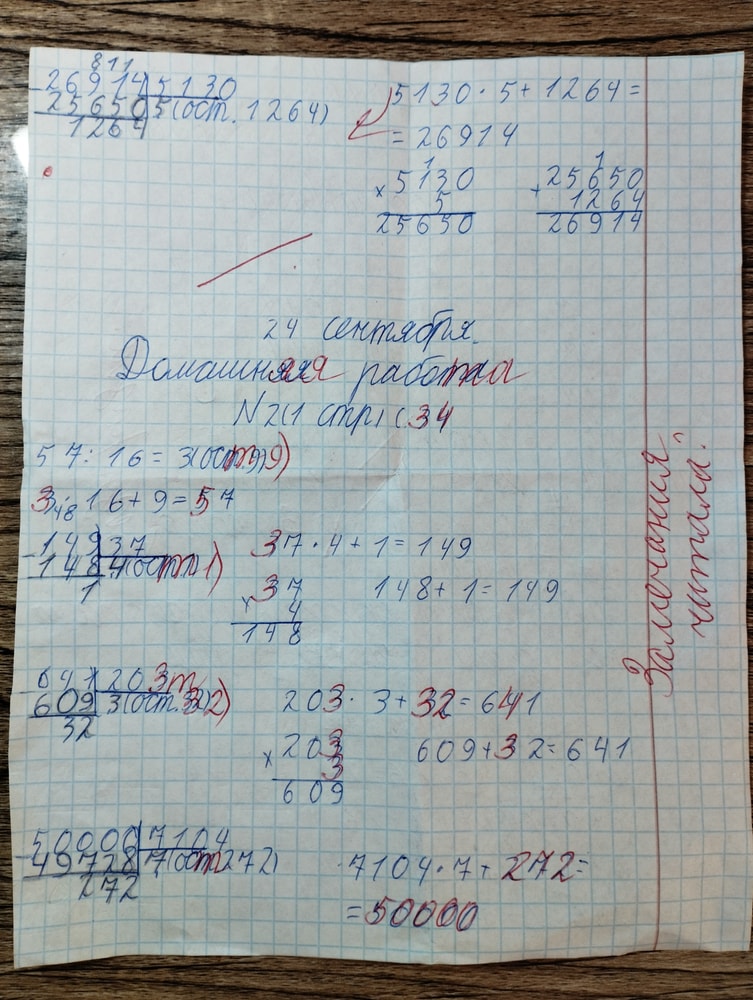 811
26914 5130
25650 5(ост. 1264)
1264
5130 · 5 + 1264 =
= 26914
1
× 5130
5
25650
1
+ 25650
1264
26914
24 сентября.
Домашняя работа
N 21 стр 34
57 : 16 = 3(ост 9)
3 · 16 + 9 = 57
48
149 37
148 4(ост 1)
1
37 · 4 + 1 = 149
× 37
4
148
148 + 1 = 149
641 203
609 3(ост. 32)
32
203 · 3 + 32 = 641
× 203
3
609
609 + 32 = 641
50000 7104
49728 7(ост 272)
272
7104 · 7 + 272 =
= 50000
Замечания
читала?